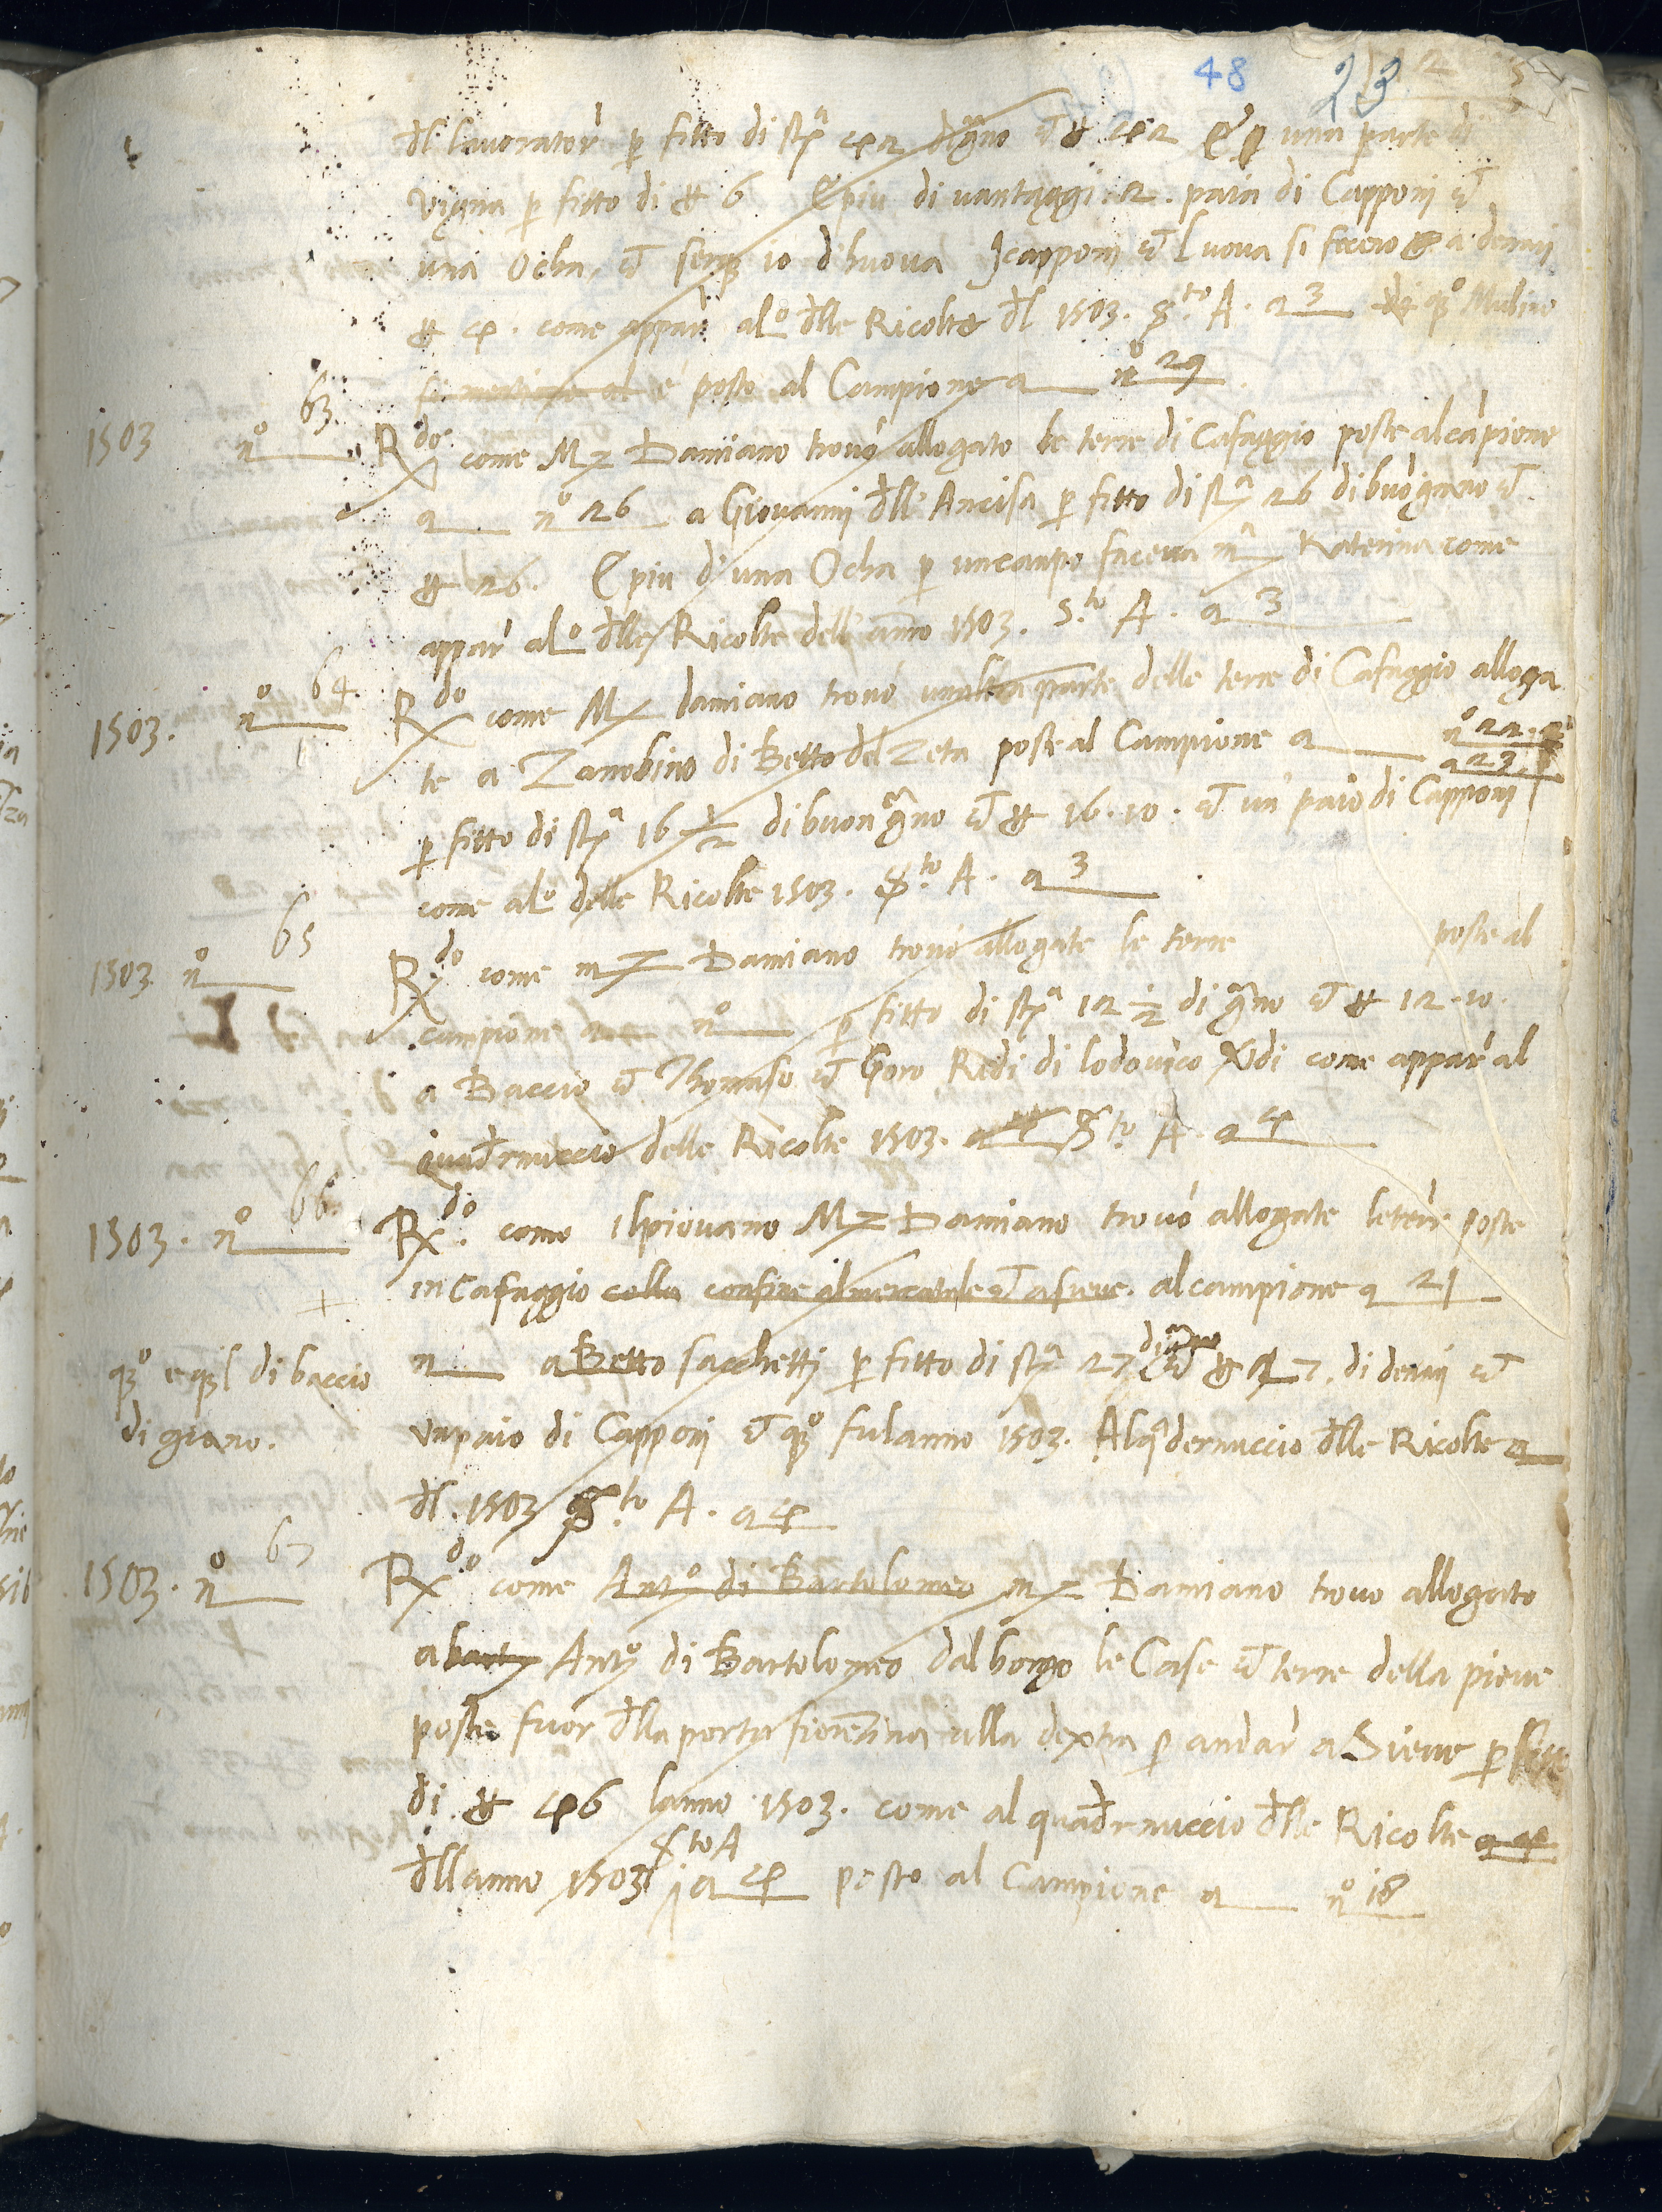 48 23
dl lavorator p fitto di stª 42 dgno et £ 42 E p una parte di
vigna p fitto di £ 6 E piu di vantaggi 2. paia di Capponi et
una Ocha, et serq 10 dhuova I capponi et luova si fecero a denari
£ 4. come appar al lº dlle Ricolte dl 1503. Sto A. a 3 qº Mulino
e posto al Campione a nº 29
1503 nº 63. Rdo come Mz Damiano trovò allogato le terre di Cafaggio poste al capione
a nº 26 a Giovanni dlle Ancisa p fitto di stª 26 di buo grano et
£ 26. E piu di una Ocha p un campo faceva mª Katerina come
appar al lº dlle Ricolte dell anno 1503. Sto A. a 3
1503. nº 64. Rdo come Mz damiano trovò unaltra parte delle terre di Cafaggio alloga
te a Zanobino di Betto del Zeta poste al Campione a nº 22. et
a 23.
p fitto di stª 16 1/2 di buon grano et £ 16.10. et un paio di Capponi
come al lº delle Ricolte 1503. Sto A. a 3
1503. nº 65 Rdo come mz Damiano trovò allogate le terre poste al
campione a nº p fitto di stª 12 1/2 di grano et £ 12.10.
a Baccio et Thomaso et Goro Redi di lodovico Redi come appar al
quadrnuccio delle Ricolte 1503. a 4 Sto A. a 4
1503. nº 66. Rdo. come il piovano Mz Damiano trovò allogate le terre poste
in Cafaggio colla confine al mercatale et a sieve. al campione a 21
qº e ql di baccio
di giano.
n a Betto sacchetti p fitto di stª 27 di grano et £ 27. di denari et
un paio di Capponi et qº fu lanno 1503. Al qdernuccio dlle Ricolte a
dl. 1503 Sto A. a 4
1503. nº 67 Rdo come Antº di Bartolomeo mz Damiano trovo allogato
a barto Antº di Bartolomeo dal borgo le Case et terre della pieve
poste fuor dlla porta fiorentina alla dextra p andar a Sieve p fitto
di £ 46 lanno 1503. come al quadrnuccio dlle Ricolte a 4
dll anno 1503 Sto A a 4 posto al Campione a nº 18